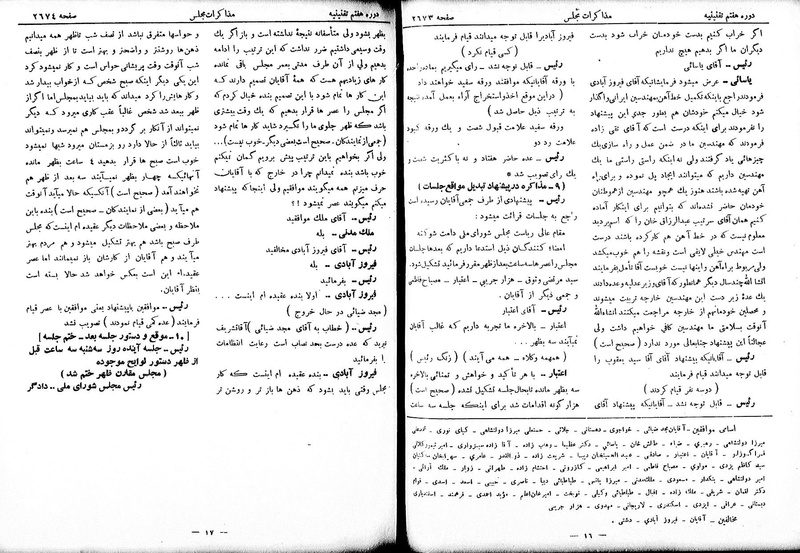 دوره هفتم تقنینیه
مذاکرات مجلس
صفحه ۲۶۷۳
اگر خراب کنیم بدست خودمان خراب شود بدست
دیگران ما اگر بدهیم هیچ نداریم
رئیس - آقای یاسائی
یاسائی - عرض میشود فرمایشاتیکه آقای فیروز آبادی
فرمودند راجع باینکه تکمیل خط آهن مهندسین ایرانی واگذار
شود خیال میکنم خودشان هم بطور جدی این پیشنهاد
را نفرمودند برای اینکه درست است که آقای تقی زاده
فرمودند که مهندسین ما در ضمن عمل و راه سازی یک
چیزهائی یاد گرفتند ولی نه اینکه راستی راستی ما یک
مهندسین داریم که میتوانند ایجاد پل نموده و برای راه
آهن تهیه شده باشند هنوز یک همچو مهندسین از هموطنان
خودمان حاضر نشده‌اند که بتوانیم برای اینکار آماده
کنیم همان آقای سرتیب عبدالرزاق خان را که اسم بردید
معلوم نیست که در خط آهن هم کار کرده باشند درست
است مهندس خیلی لایقی است و نقشه را هم خوب میکشد
ولی مربوط براه آهن و اینها نیست خوبست آقا تأمل بفرمایند
انشاء الله چند سال دیگر همانطور که آقای وزیر عدلیه وعده دادند
یک عدهٔ زیر دست این مهندسین خارجه تربیت میشوند
و محصلین خودمانهم از خارجه مراجعت میکنند انشاءالله
آنوقت بسلامتی ما مهندسین کافی خواهیم داشت ولی
عجالتاً این پیشنهاد جنابعالی مورد ندارد (صحیح است)
رئیس - آقایانیکه پیشنهاد آقای آقا سید یعقوب را
قابل توجه میدانند قیام فرمایند
(دوسه نفر قیام کردند)
رئیس - قابل توجه نشد - آقایانیکه پیشنهاد آقای
فیروز آبادیرا قابل توجه میدانند قیام فرمایند
(کسی قیام نکرد)
رئیس - قابل توجه نشد - رأی میگیریم بماده واحده
با ورقه آقایانیکه موافقند ورقه سفید خواهند داد
(در این موقع اخذ و استخراج آراء بعمل آمد، نتیجه
به ترتیب ذیل حاصل شد)
ورقه سفید علامت قبول شصت و یک ورقه کبود
علامت رد دو
رئیس - عده حضار هفتاد و نه با اکثریت شصت و
یک رأی تصویب شد *
(۹ - مذاکره در پیشنهاد تبدیل مواقع جلسات)
رئیس - پیشنهادی از طرف جمعی آقایان رسیده است
راجع به جلسات قرائت میشود:
مقام عالی ریاست مجلس شورای ملی دامت شوکته
امضاء کنندگان ذیل استدعا داریم که بعدها جلسات
مجلس را عصرها سه ساعت بعد از ظهر مقرر فرمائید تشکیل شود.
سید مرتضی وثوق - هزار جریبی - اعتبار - مصباح فاطمی
و جمعی دیگر از آقایان.
رئیس - آقای اعتبار
اعتبار - بالاخره ما تجربه داریم که غالب آقایان
نمیآیند سه بظهر ...
(همهمه وکلاء - همه می آیند) (زنگ رئیس)
اعتبار - با هر تأکید و خواهش و تمنائی بالاخره
سه بظهر مانده تا بحال جلسه تشکیل نشده (صحیح است)
هزار گونه اقدامات شد برای اینکه جلسه سه ساعت
اسامی موافقین - آقایان
مخالفین - آقایان فیروز آبادی - دشتی.
— ۱۶ —
دوره هفتم تقنینیه
مذاکرات مجلس
صفحه ۲۶۷۴
بظهر بشود ولی متأسفانه نتیجهٔ نداشته است و باز اگر یک
وقت وسیعی داشتیم ضرر نداشت که این ترتیب را ادامه
بدهیم ولی از آن طرف مدتی بعمر مجلس باقی نمانده
کار های زیادیهم هست که همهٔ آقایان تصمیم دارند که
این کار ها تمام شود با این تصمیم بنده خیال کردم که
اگر مجلس را عصر ها قرار بدهیم که یک وقت بیشتری
باشد که ظهر جلوی ما را نگیرد شاید کار ها تمام شود
(جمعی از نمایندگان - صحیح است، بعضی دیگر خوب نیست) ...
ولی اگر بخواهیم باین ترتیب پیش برویم گمان نمیکنم
خوب باشد بنده نمیدانم چرا در خارج که با آقایان
حرف میزنم همه میگویند موافقیم ولی اینجا که پیشنهاد
میکنم میگویند عصر نمیشود ؟!
رئیس - آقای ملک موافقید
ملک مدنی - بله
رئیس - آقای فیروز آبادی مخالفید
فیروز آبادی - بله
رئیس - بفرمائید
فیروز آبادی - اولا بنده عقیده ام اینست ...
(مجد ضیائی در حال خروج)
رئیس - (خطاب به آقای مجد ضیائی) آقا تشریف
نبرید که عده درست بعد نصاب است رعایت انتظامات
را بفرمائید
فیروز آبادی - بنده عقیده ام اینست که کار
مجلس وقتی باید بشود که ذهن ها باز تر و روشن تر
و حواسها متفرق نباشد از نصف شب تا ظهر همه میدانیم
ذهن‌ها روشنتر و واضحتر و بهتر است تا از ظهر بنصف
شب آنوقت وقت پریشانی حواس است و کار نمیشود کرد
این یکی دیگر اینکه صبح شخص که از خواب بیدار شد
و کارهایش را کرد میداند که باید بیاید بمجلس اما اگر از
ظهر ببعد شد شخص غالباً عقب کاری میرود که دیگر
نمیتواند از آنکار بر گردد و بمجلس هم نمیرسد و نمیتواند
بیاید ثالثاً از حالا دارد رو بزمستان میرود شبها نمیشود
خوب است صبح ها قرار بدهید ٤ ساعت بظهر مانده
آنهائیکه چهار بظهر نمیآیند سه بعد از ظهر هم
نخواهند آمد (صحیح است) آنکسیکه حالا میآید آنوقت
هم میآید (بعضی از نمایندگان - صحیح است) بنده باین
ملاحظه و بعضی ملاحظات دیگر عقیده ام اینست که مجلس
طرف صبح باشد هم بهتر تشکیل میشود و هم مردم بهتر
میآیند و هم آقایان از کارشان باز نمیمانند اما عصر
عقیده ام این است بعکس خواهد شد حالا بسته است
بنظر آقایان.
رئیس - موافقین با پیشنهاد یعنی با عصر قیام
فرمایند (عده کمی قیام نمودند) تصویب نشد
[۱۰ - موقع و دستور جلسه بعد - ختم جلسه]
رئیس - جلسه آینده روز سه‌شنبه سه ساعت قبل
از ظهر دستور لوایح موجوده
(مجلس مقارن ظهر ختم شد)
رئیس مجلس شورای ملی - دادگر
— ۱۷ —